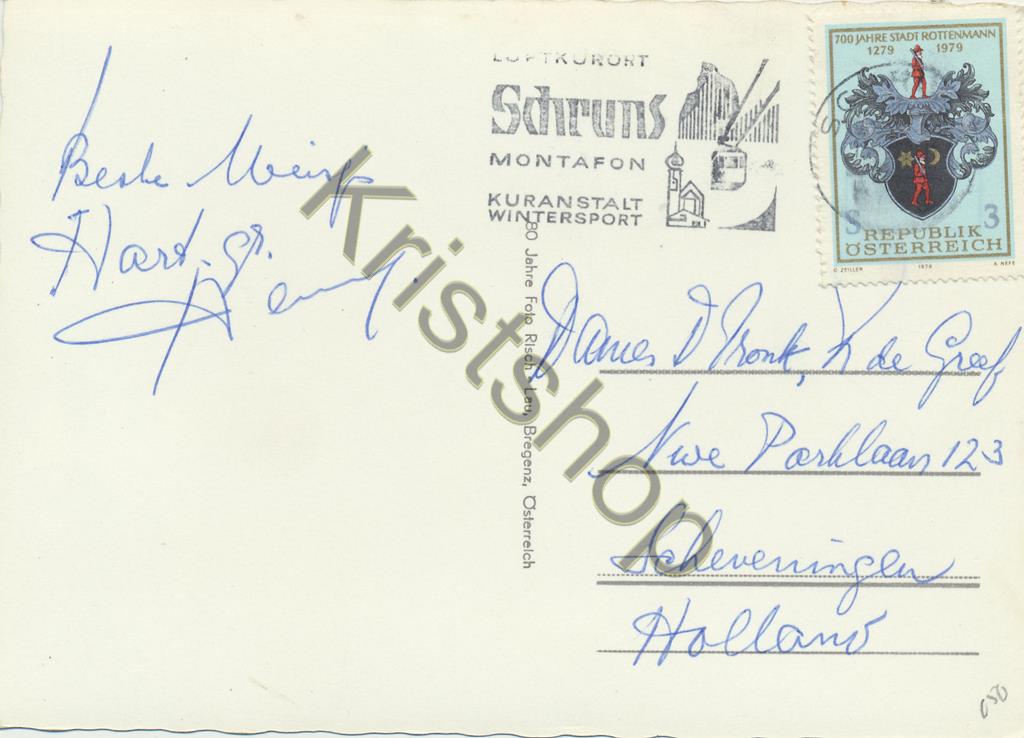 Beste Meisjes
Hart. gr.
LUFTKURORT
Schruns
MONTAFON
KURANSTALT
WINTERSPORT
700 JAHRE STADT ROTTENMANN
1279 1979
S 3
REPUBLIK
ÖSTERREICH
O. ZEILLER 1979 A. NEFE
80 Jahre Foto Risch-Lau, Bregenz, Österreich
Dames D Pronk, K de Graaf
Nwe Parklaan 123
Scheveningen
Holland
050
Kristshop